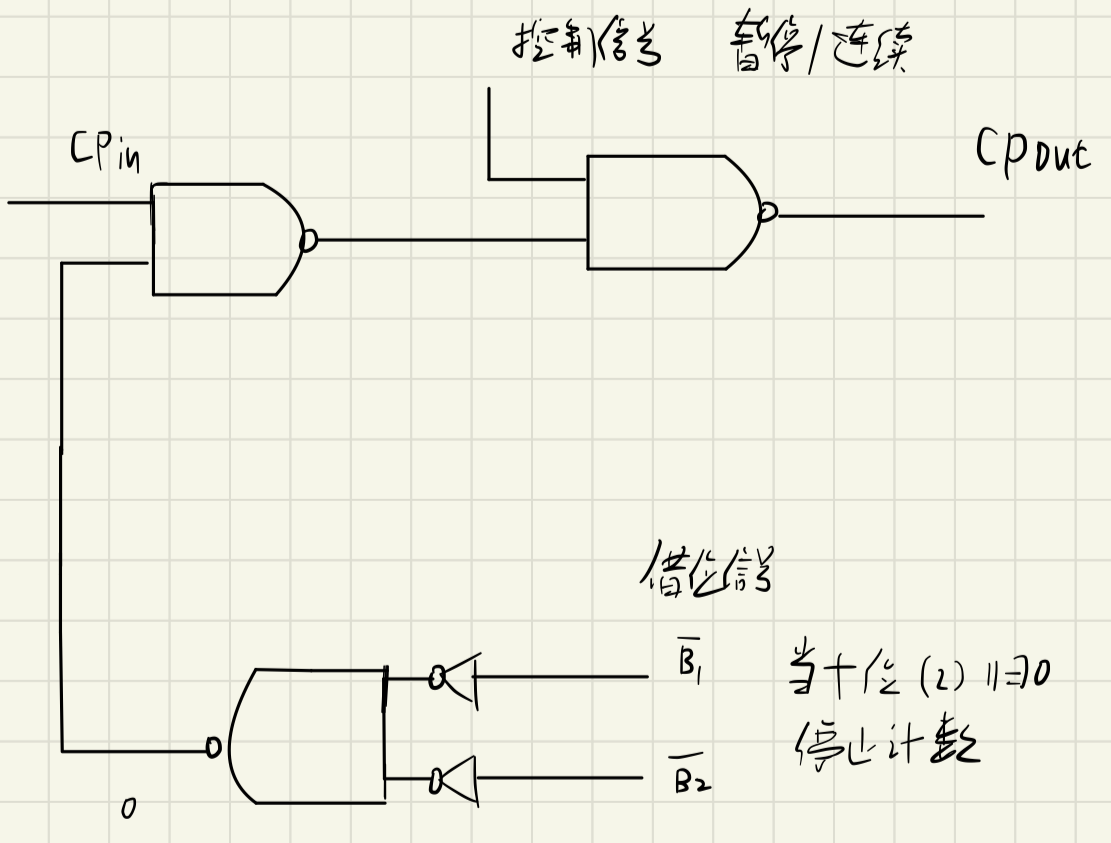 控制信号 暂停/连续
CPin
CPout
借位信号
B̅₁
当十位(2)
B̅₂
停止计数
0